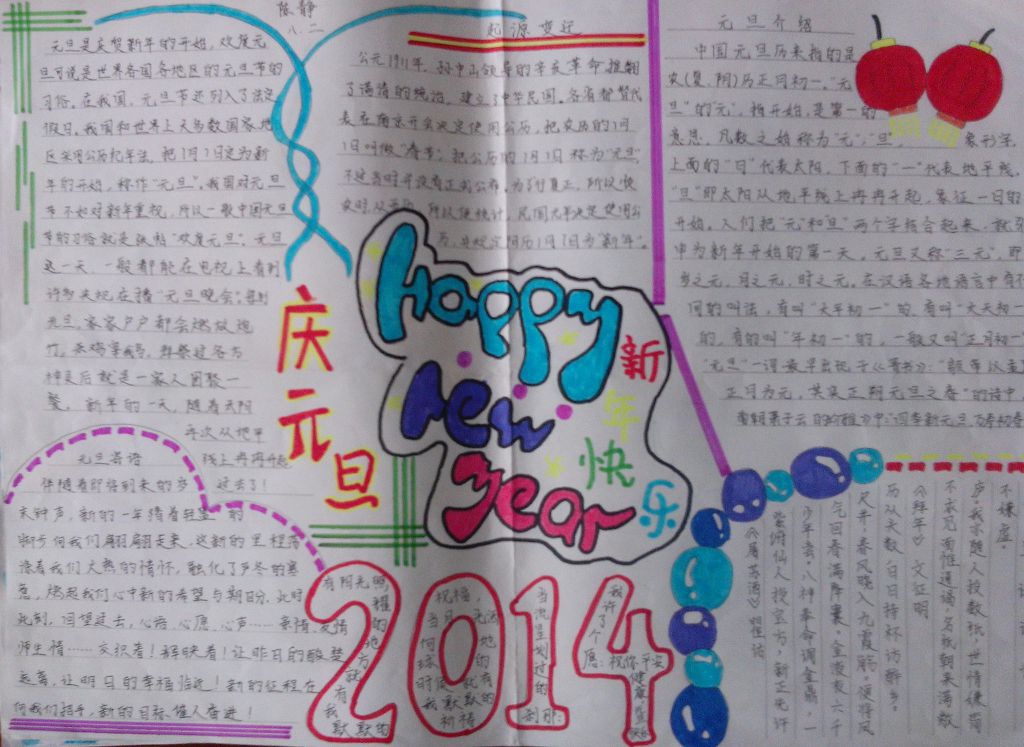 陈静
八.二
元旦是庆贺新年的开始,欢度元
旦可说是世界各国各地区的元旦节的
习俗。在我国,元旦节还列入了法定
假日。我国和世界上大多数国家地
区采用公历纪年法,把1月1日定为新
年的开始,称作“元旦”。我国对元旦
节不如对新年重视,所以一般中国元旦
节的习俗就是张贴“欢度元旦”。元旦
这一天,一般都能在电视上看到
许多央视在播“元旦晚会”。每到
元旦,家家户户都会燃放炮
竹,杀鸡宰鹅,拜祭过各方
神灵后就是一家人团聚一
餐。新年的一天,随着太阳
再次从地平
线上冉冉升起
过去了!
起源变迁
公元1911年,孙中山领导的辛亥革命推翻
了满清的统治,建立了中华民国。各省都督代
表在南京开会决定使用公历,把农历的1月
1日叫做“春节”,把公历的1月1日称为“元旦”
不过当时并没有正式公布。为了行夏正,所以顺
农时,从西历,所以便统计,民国元年决定使用公
历,并规定阳历1月1日为“新年”。
元旦介绍
中国元旦历来指的是
农(夏、阴)历正月初一。“元
旦”的“元”,指开始,是第一的
意思,凡数之始称为“元”;旦,
象形字,
上面的“日”代表太阳,下面的“一”代表地平线,
“旦”即太阳从地平线上冉冉升起,象征一日的
开始。人们把“元”和旦”两个字结合起来,就引
申为新年开始的第一天。元旦又称“三元”,即
岁之元、月之元、时之元。在汉语各地语言中有不
同的叫法,有叫“大年初一”的,有叫“大天初一”
的,有的叫“年初一”的,一般又叫“正月初一”
“元旦”一词最早出现于《晋书》:
正月为元,其实正朔元旦之春”的诗中
庆
元
旦
Happy
new
year
新
年
快
乐
元旦寄语
伴随着即将到来的岁
末钟声,新的一年踏着轻盈的
脚步向我们翩翩走来,这新的里程
着我们火热的情怀,融化了严冬的寒
意,燃起我们心中新的希望与期盼。此时
此刻,回望过去,心语、心愿、心声……亲情、友情
师生情……交织着!辉映着!让昨日的酸楚
远离,让明日的幸福临近!新的征程在
向我们招手,新的目标催人奋进!
2014
有阳光照
耀的地方就
有我默默的
祝福,
当月光洒
向地球的
时候就有
我默默的
祈祷
当流星划过的
刹那:
我许了个
愿:祝你平安
健康
快乐
不嫌虚。
我亦随人投数纸,世情嫌简
不求见面惟通谒,名纸朝来满敝
《拜年》 文征明
历从头数,白日持杯访新乡。
尺井,春风晓入九霞觞。便将凤
气回春满绛囊。金液夜六千
少年去,八神奉命调金鼎,一
紫府仙人授宝方,新正先许
《屠苏酒》明瞿佑